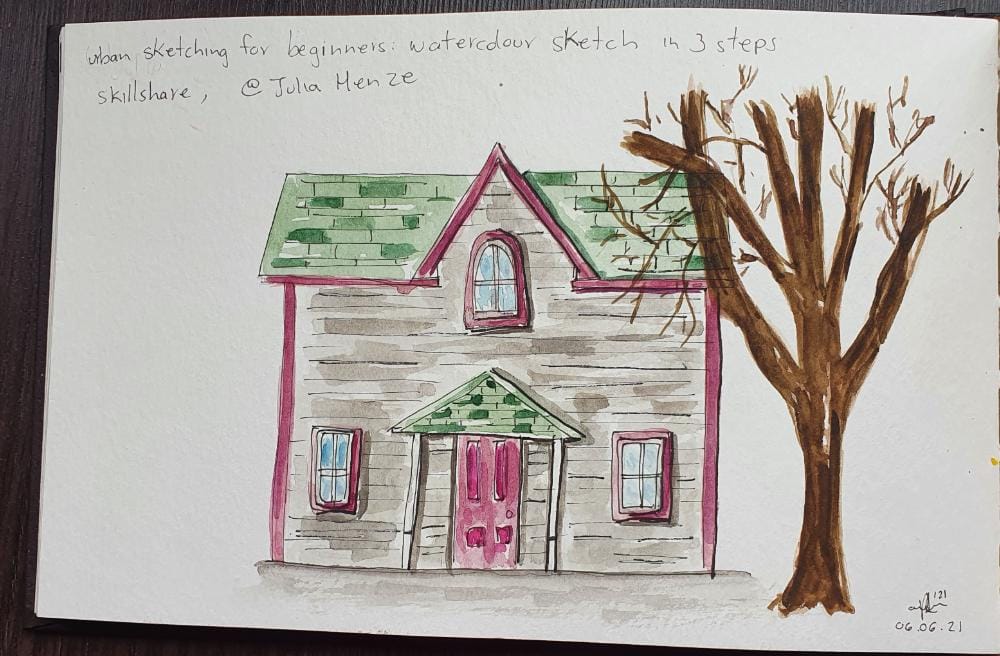 urban sketching for beginners: watercolour sketch in 3 steps
skillshare, @ Julia Menze
'21
06.06.21